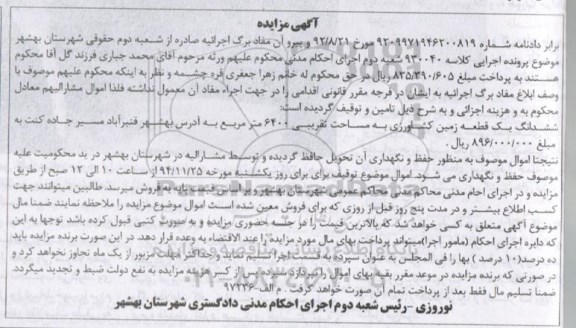 آگهی مزایده
برابر دادنامه شماره ۹۲۰۹۹۷۱۹۴۶۲۰۰۸۱۹ مورخ ۹۲/۸/۲۱ و پیرو آن مفاد برگ اجرائیه صادره از شعبه دوم حقوقی شهرستان بهشهر
موضوع پرونده اجرایی کلاسه ۹۳۰۰۴۰ شعبه دوم اجرای احکام مدنی محکوم علیهم ورثه مرحوم آقای محمد جباری فرزند گل آقا محکوم
هستند به پرداخت مبلغ ۸۳۵/۳۹۰/۶۰۵ ریال در حق محکوم له خانم زهرا جعفری قره چشمه و نظر به اینکه محکوم علیهم موصوف با
وصف ابلاغ مفاد برگ اجرائیه به ایشان در فرجه مقرر قانونی اقدامی را در جهت اجراء مفاد آن معمول نداشته فلذا اموال مشارالیهم معادل
محکوم به و هزینه اجرائی و به شرح ذیل تامین و توقیف گردیده است:
ششدانگ یک قطعه زمین کشاورزی به مساحت تقریبی ۶۴۰۰ متر مربع به آدرس بهشهر قنبرآباد مسیر جاده کنت به
مبلغ ۸۹۶/۰۰۰/۰۰۰ ریال.
نتیجتا اموال موصوف به منظور حفظ و نگهداری آن تحویل حافظ گردیده و توسط مشارالیه در شهرستان بهشهر در ید محکومیت علیه
موصوف حفظ و نگهداری می شود. اموال موضوع توقیف برای روز یکشنبه مورخه ۹۴/۱۱/۲۵ از ساعت ۱۰ الی ۱۲ صبح از طریق
مزایده و در اجرای احام مدنی محاکم محاکم عمومی شهرستان بهشهر بر اساس قیمت پایه به فروش میرسد. طالبین میتوانند جهت
کسب اطلاع بیشتر و در مدت پنج روز قبل از روزی که برای فروش معین شده است اموال موضوع مزایده را ملاحظه نمایند ضمنا مال
موضوع آگهی متعلق به کسی خواهد شد که بالاترین قیمت را در جلسه حضوری مزایده و به صورت کتبی قبول کرده باشد توجها به این
که دایره اجرای احکام (مامور اجرا) میتواند پرداخت بهای مال مورد مزایده را عند الاقتضاء به وعده قرار دهد. در این صورت برنده مزایده باید
ده درصد(۱۰ درصد) بها را فی المجلس به عنوان سپرده به قسمت اجرا تسلیم نماید و حداکثر مهلت مزبور از یک ماه تجاوز نخواهد کرد و
در صورتی که برنده مزایده در موعد مقرر بقیه بهای اموال را نپردازد سپرده او پس از کسر هزینه مزایده به نفع دولت ضبط و تجدید میگردد.
ضمنا تسلیم مال فقط بعد از پرداخت تمام آن صورت خواهد گرفت. م الف-۹۷۲۳۶
نوروزی -رئیس شعبه دوم اجرای احکام مدنی دادگستری شهرستان بهشهر